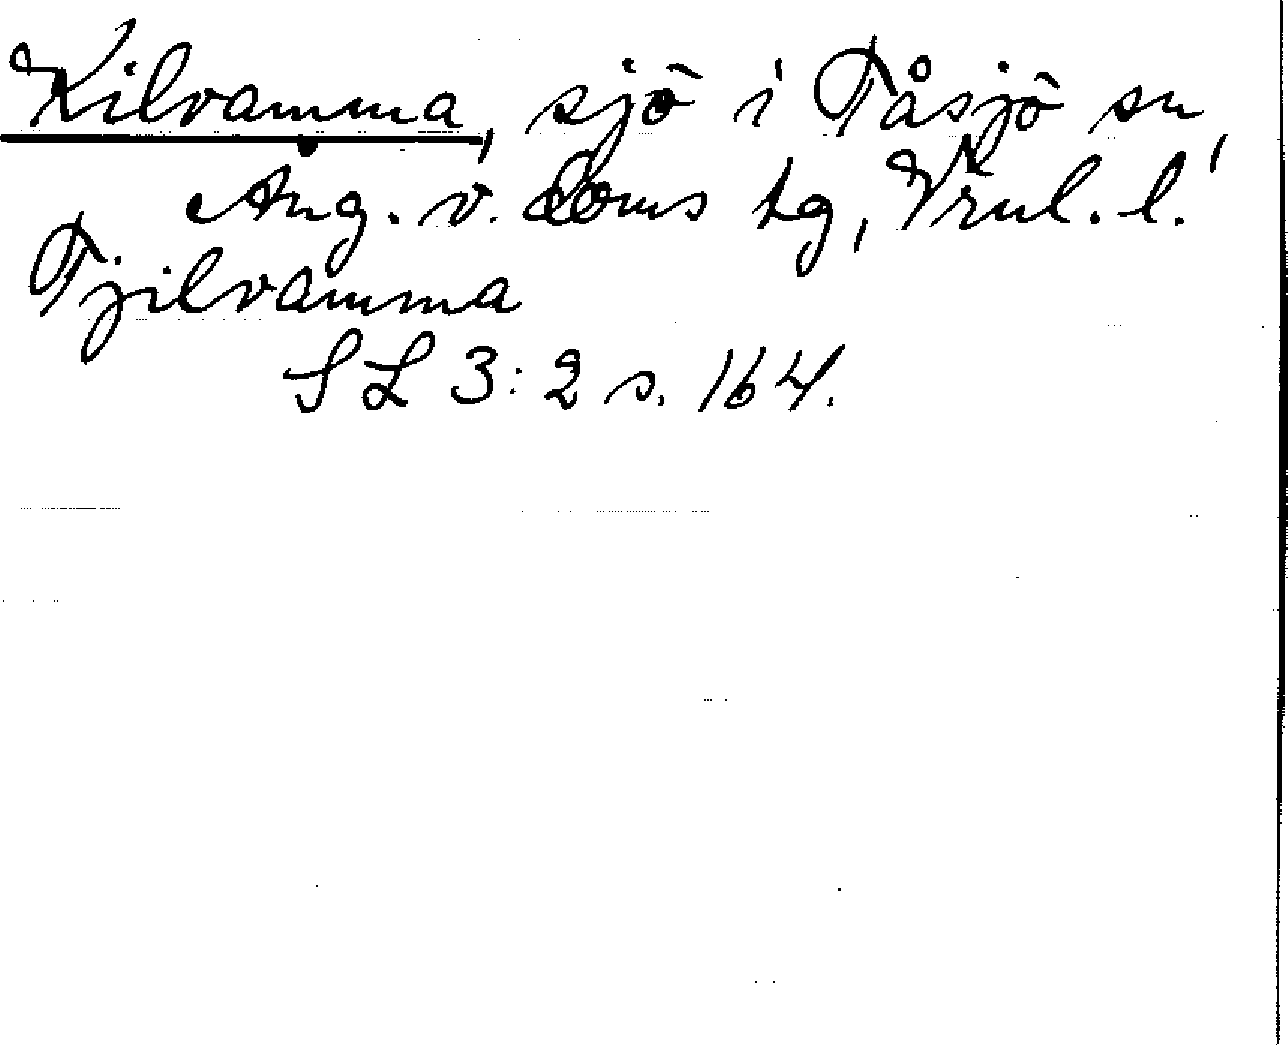 Kilvamma, sjö i Tåsjö sn,
Ång. v. Doms hg, Vrml. l.
Tjilvamma
SL 3:2 s. 164.